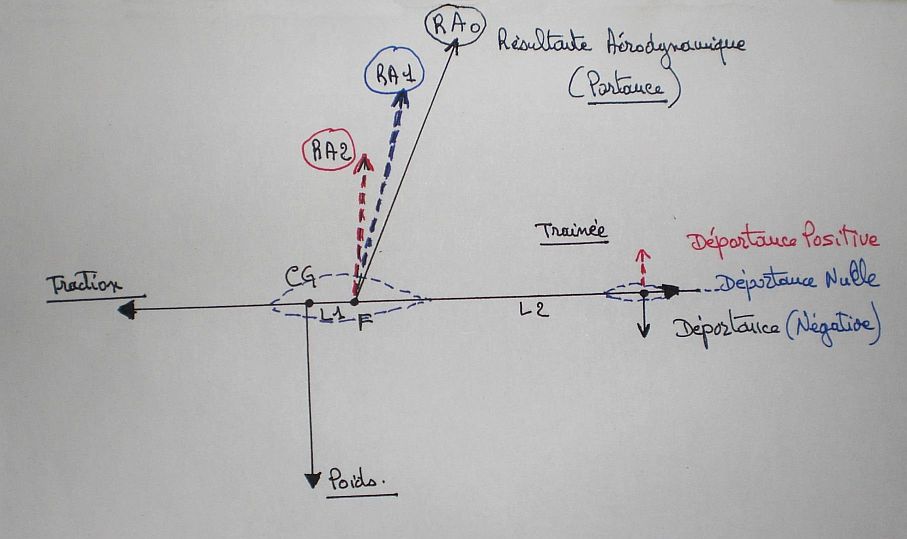 RA0
Résultante Aérodynamique
(Portance)
RA1
RA2
Trainée
Déportance Positive
Traction
CG
Déportance Nulle
L1
F
L2
Déportance (Négative)
Poids.